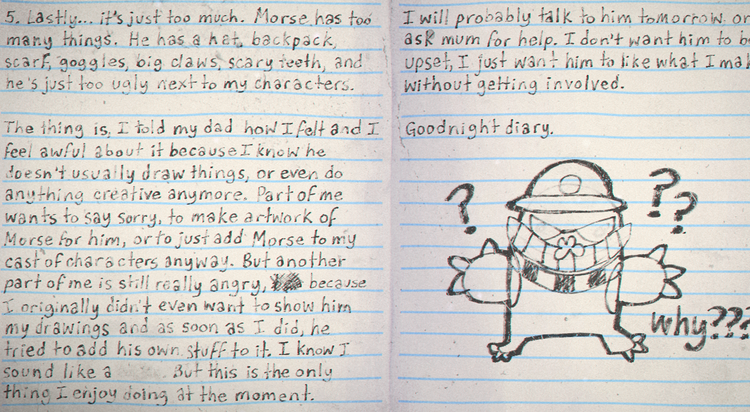 5. Lastly... it's just too much. Morse has too
many things. He has a hat, backpack,
scarf, goggles, big claws, scary teeth, and
he's just too ugly next to my characters.
The thing is, I told my dad how I felt and I
feel awful about it because I know he
doesn't usually draw things, or even do
anything creative anymore. Part of me
wants to say sorry, to make artwork of
Morse for him, or to just add Morse to my
cast of characters anyway. But another
part of me is still really angry, because
I originally didn't even want to show him
my drawings and as soon as I did, he
tried to add his own stuff to it. I know I
sound like a . But this is the only
thing I enjoy doing at the moment.
I will probably talk to him tomorrow, or
ask mum for help. I don't want him to
upset, I just want him to like what I
without getting involved.
Goodnight diary.
?
??
why???